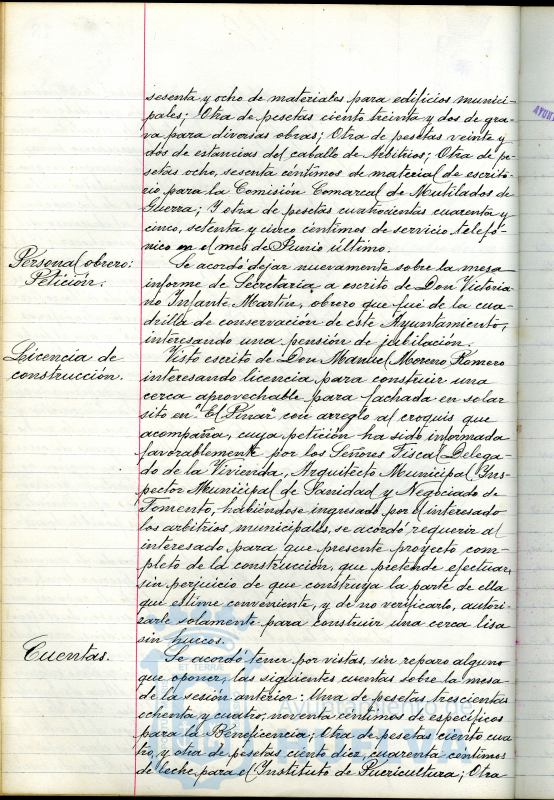 sesenta y ocho de materiales para edificios munici-
pales; Otra de pesetas ciento treinta y dos de gra-
va para diversas obras; Otra de pesetas veinte y
dos de estancias del caballo de Arbitrios; Otra de pe-
setas ocho, sesenta céntimos de material de escrito-
rio para la Comisión Comarcal de Mutilados de
Guerra; Y otra de pesetas cuatrocientas cuarenta y
cinco, setenta y cinco céntimos de servicio telefó-
nico en el mes de Junio último.
Personal obrero:
Petición.
Se acordó dejar nuevamente sobre la mesa
informe de Secretaria a escrito de Don Victoria-
no Infante Martín, obrero que fué de la cua-
drilla de conservación de este Ayuntamiento,
interesando una pensión de jubilación.
Licencia de
construcción.
Visto escrito de Don Manuel Moreno Romero
interesando licencia para construir una
cerca aprovechable para fachada en solar
sito en "El Pinar" con arreglo al croquis que
acompaña, cuya petición ha sido informada
favorablemente por los Señores Fiscal Delega-
do de la Vivienda, Arquitecto Municipal, Ins-
pector Municipal de Sanidad y Negociado de
Fomento, habiéndose ingresado por el interesado
los arbitrios municipales, se acordó requerir al
interesado para que presente proyecto com-
pleto de la construcción, que pretende efectuar,
sin perjuicio de que construya la parte de ella
que estime conveniente, y de no verificarlo, autori-
zarle solamente para construir una cerca lisa
sin huecos.
Cuentas.
Se acordó tener por vistas, sin reparo alguno
que oponer, las siguientes cuentas sobre la mesa
de la sesión anterior: Una de pesetas trescientas
ochenta y cuatro, noventa céntimos de específicos
para la Beneficencia; Otra de pesetas ciento cua-
tro, y otra de pesetas ciento diez, cuarenta céntimos
de leche para el Instituto de Puericultura; Otra
ET TERRA
Ayuntamiento de